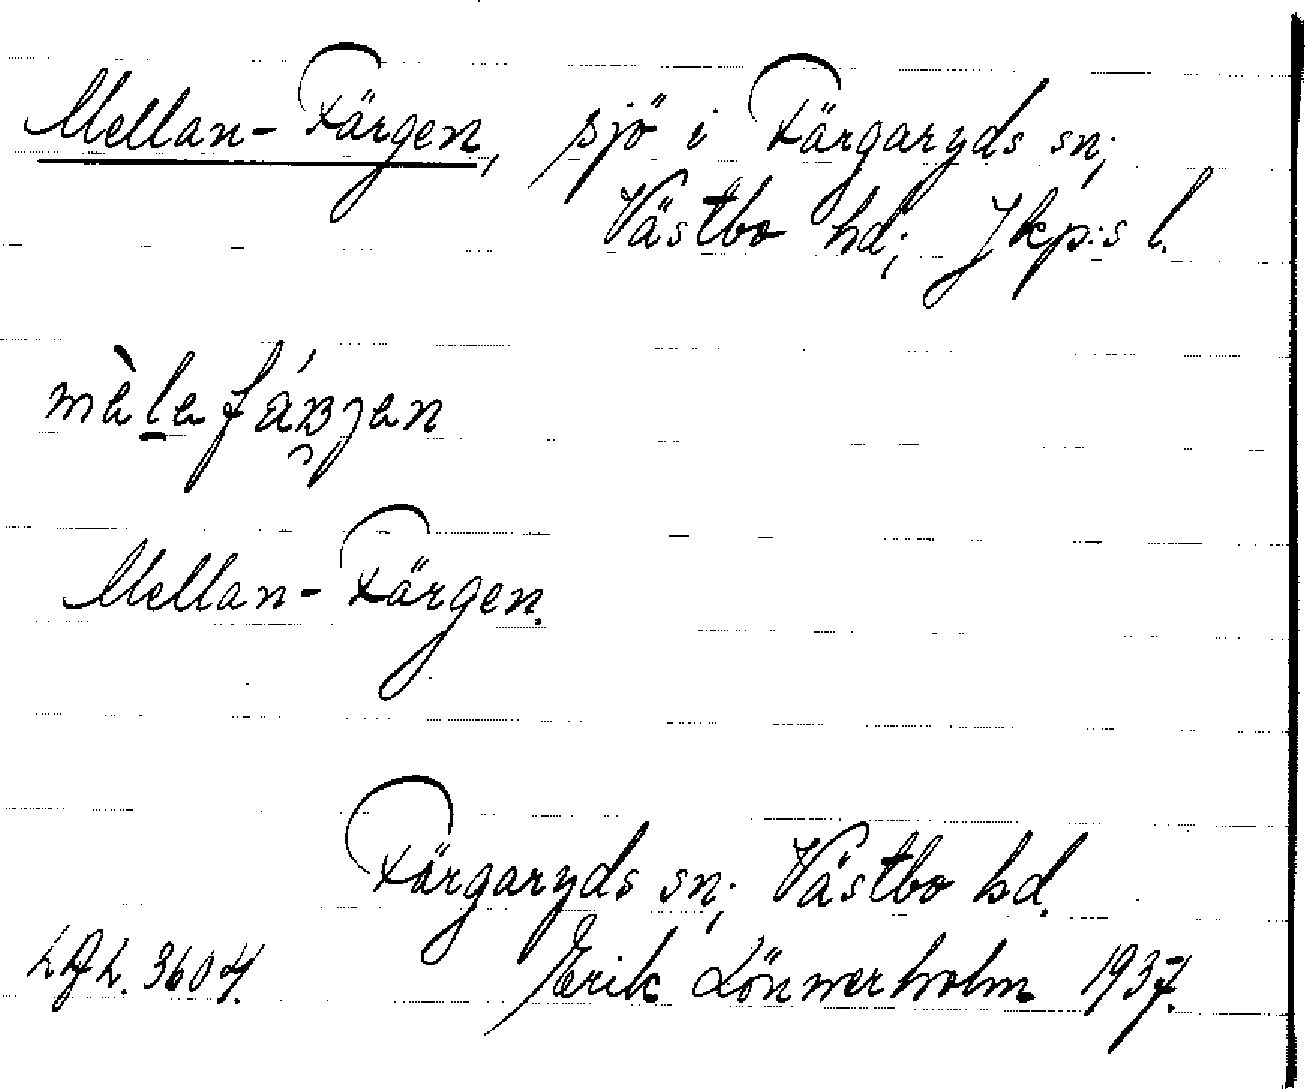 Mellan-Färgen, sjö i Färgaryds sn;
Västbo hd; Jkp:s l.
Mellan-Färgen.
Färgaryds sn; Västbo hd.
LAL. 3604. Erik Lönnerholm 1937.